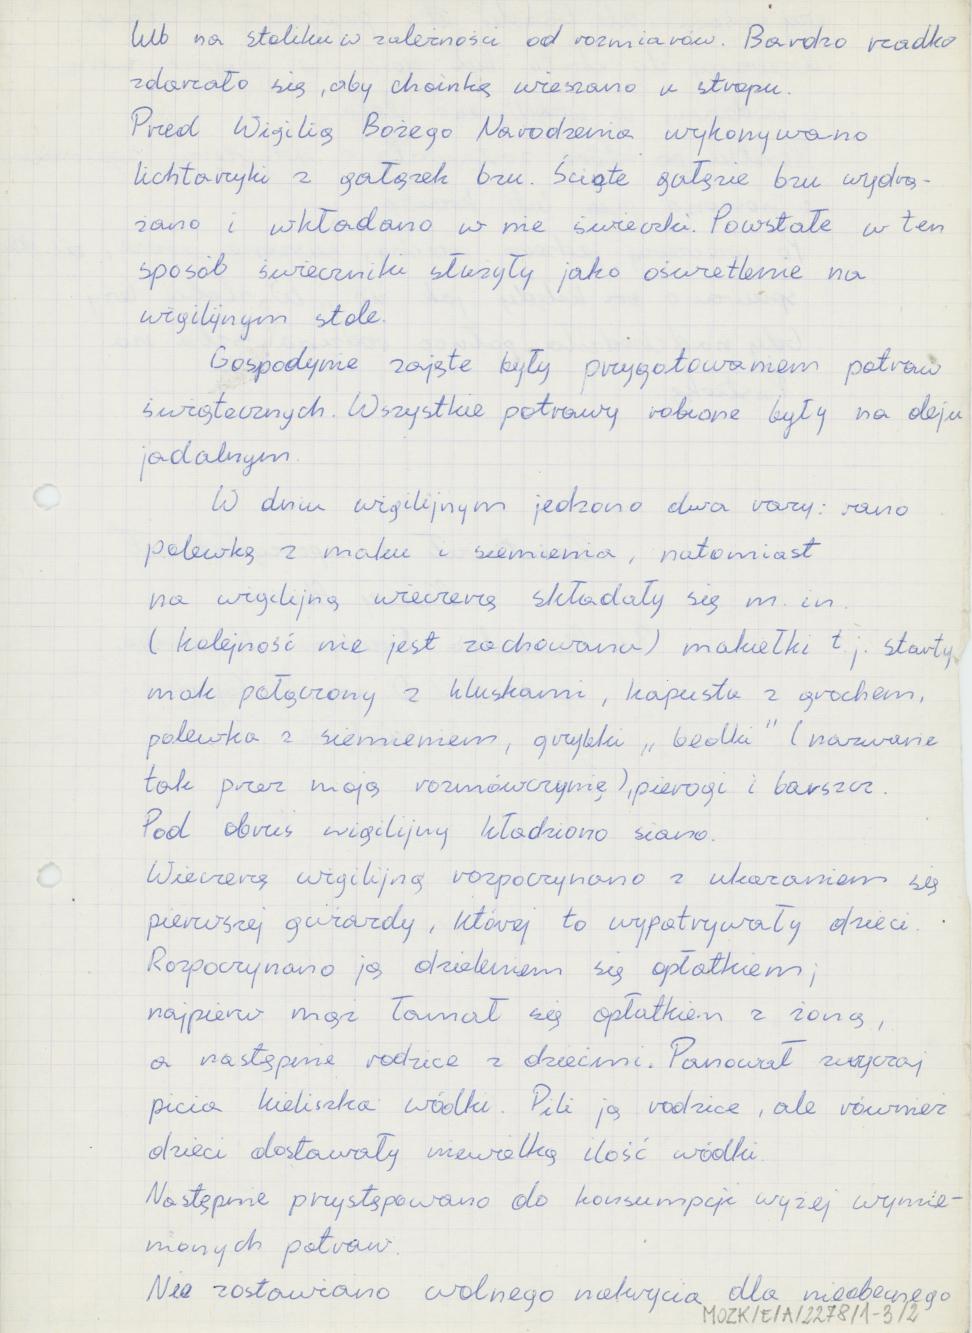 lub na stoliku w zależności od rozmiarów. Bardzo rzadko
zdarzało się, aby choinkę wieszano u stropu.
Przed Wigilią Bożego Narodzenia wykonywano
lichtarzyki z gałązek bzu. Ścięte gałęzie bzu wydrą-
żano i wkładano w nie świeczki. Powstałe w ten
sposób świeczniki służyły jako oświetlenie na
wigilijnym stole.
Gospodynie zajęte były przygotowaniem potraw
świątecznych. Wszystkie potrawy robione były na oleju
jadalnym.
W dniu wigilijnym jedzono dwa razy: rano
polewkę z maku i siemienia, natomiast
na wigilijną wieczerzę składały się m. in.
(kolejność nie jest zachowana) makiełki t.j. starty
mak połączony z kluskami, kapusta z grochem,
polewka z siemieniem, grzybki „bedłki" (nazwane
tak przez moją rozmówczynię), pierogi i barszcz.
Pod obrus wigilijny kładziono siano.
Wieczerzę wigilijną rozpoczynano z ukazaniem się
pierwszej gwiazdy, której to wypatrywały dzieci.
Rozpoczynano ją dzieleniem się opłatkiem;
najpierw mąż łamał się opłatkiem z żoną,
a następnie rodzice z dziećmi. Panował zwyczaj
picia kieliszka wódki. Pili ją rodzice, ale również
dzieci dostawały niewielką ilość wódki.
Następnie przystępowano do konsumpcji wyżej wymie-
nionych potraw.
Nie zostawiano wolnego nakrycia dla nieobecnego
MOZK/E/A/2278/1-3/2